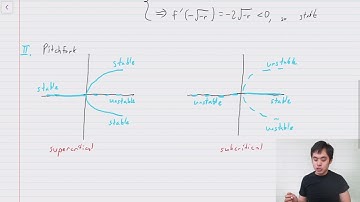 ⇒ f'(-√-r) = -2√-r < 0, so stable
II. Pitchfork
stable
unstable
stable
stable
unstable
unstable
stable
unstable
supercritical
subcritical